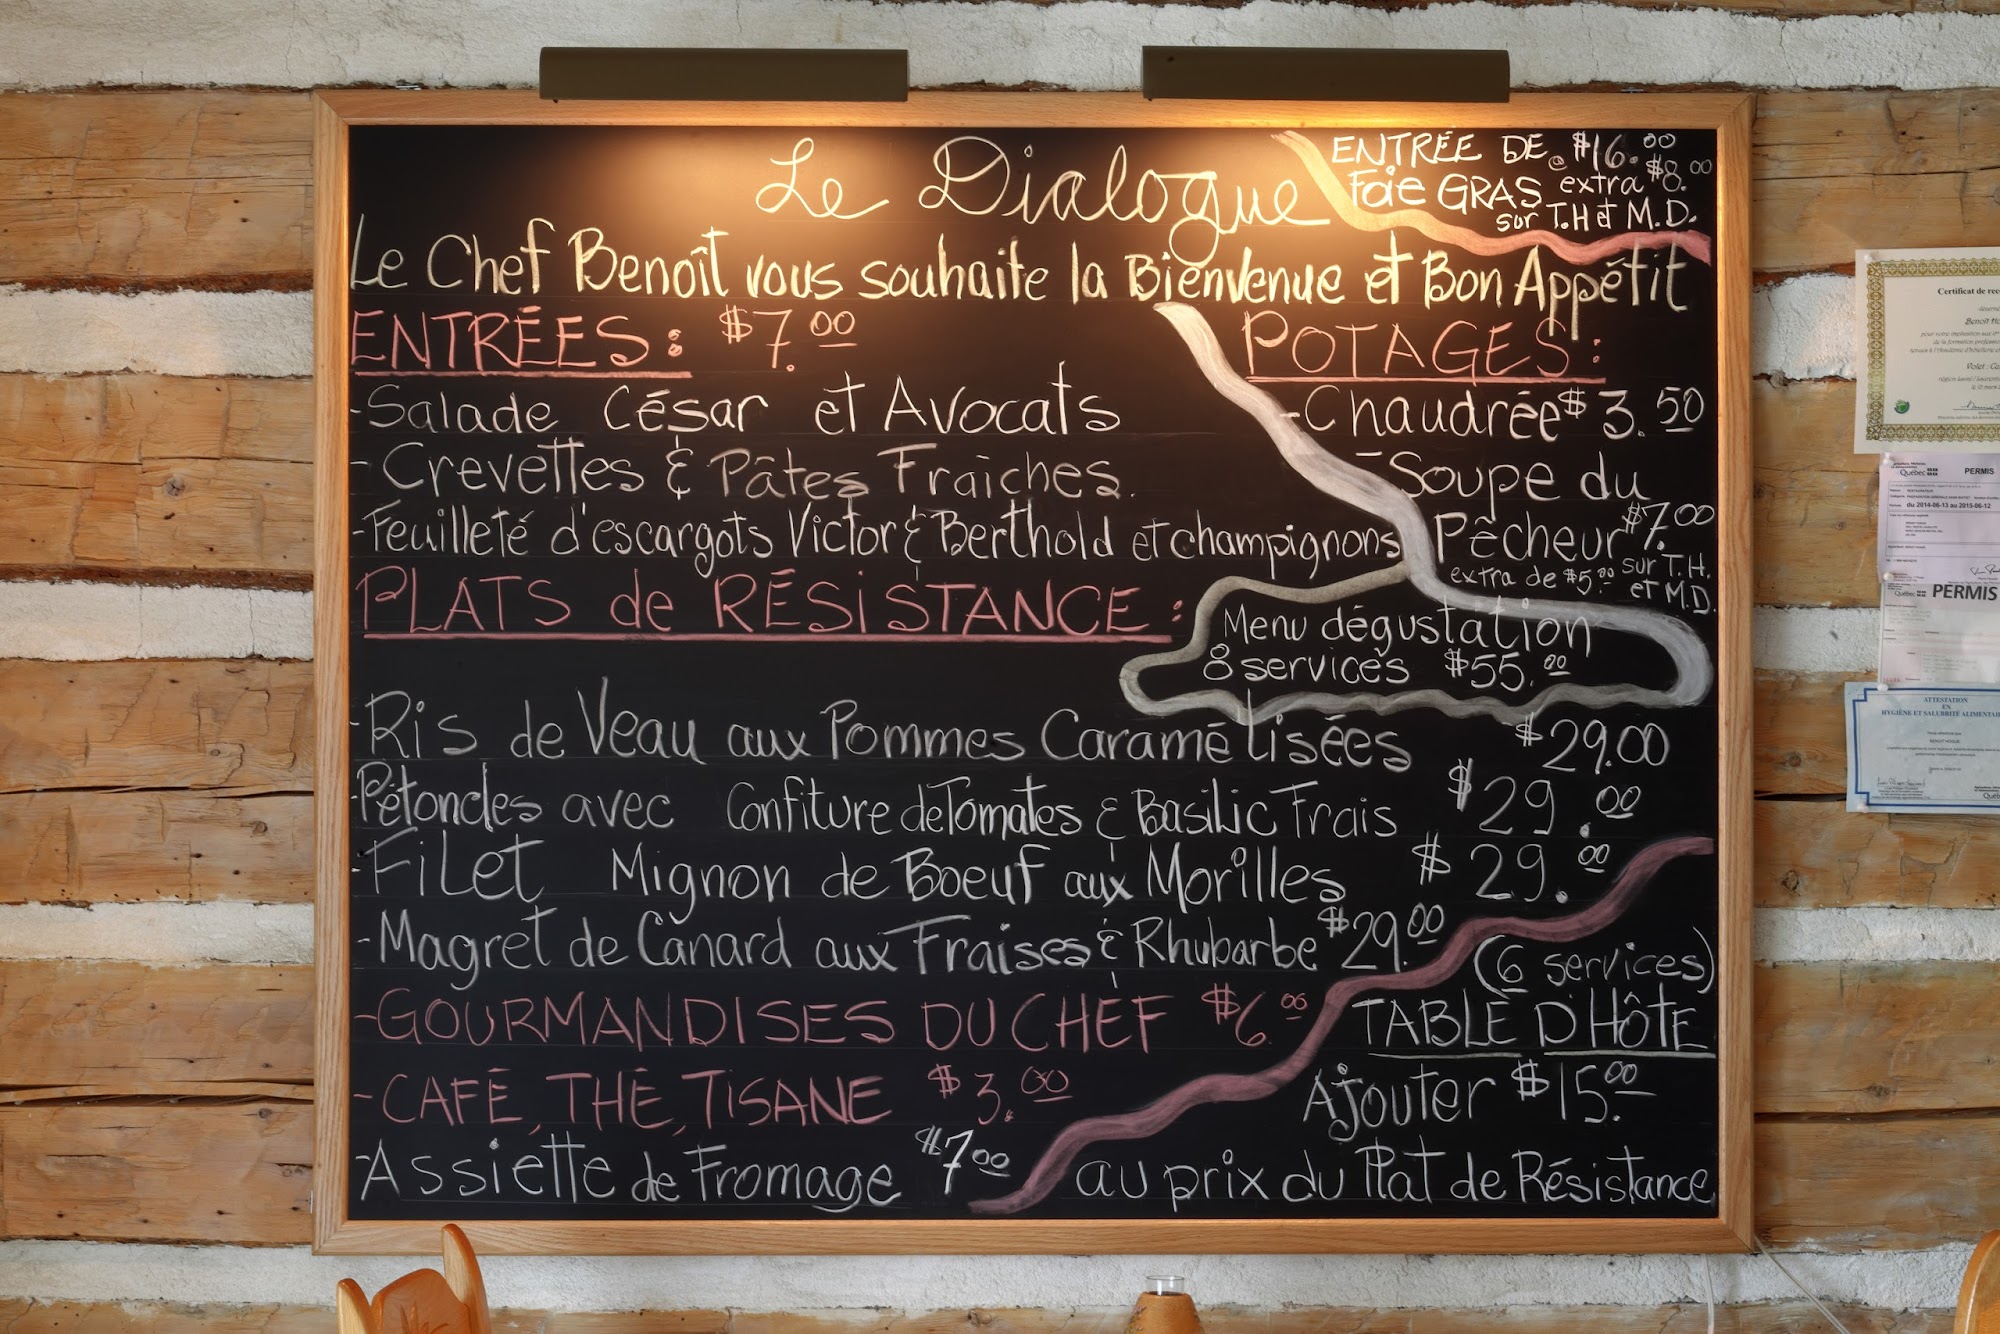 Le Dialogue
ENTRÉE DE $16.00
FOIE GRAS extra $8.00
sur T.H et M.D.
Le Chef Benoît vous souhaite la Bienvenue et Bon Appétit
ENTRÉES: $7.00
-Salade César et Avocats
-Crevettes & Pâtes Fraîches.
-Feuilleté d'escargots Victor & Berthold et champignons
POTAGES:
-Chaudrée $3.50
-Soupe du
Pêcheur $7.00
extra de $5.00 sur T.H.
et M.D.
Menu dégustation
8 services $55.00
PLATS de RÉSISTANCE:
-Ris de Veau aux Pommes Caramélisées $29.00
-Pétoncles avec Confiture de Tomates & Basilic Frais $29.00
-Filet Mignon de Boeuf aux Morilles $29.00
-Magret de Canard aux Fraises & Rhubarbe $29.00
-GOURMANDISES DU CHEF $6.00
-CAFÉ, THÉ, TISANE $3.00
-Assiette de Fromage $7.00
(6 services)
TABLE D'HÔTE
Ajouter $15.00
au prix du Plat de Résistance
Certificat de rec
Benoît Ho
Québec PERMIS
du 2014-06-13 au 2015-06-12
Québec PERMIS
ATTESTATION
EN
HYGIÈNE ET SALUBRITÉ ALIMENTAIR
Québec